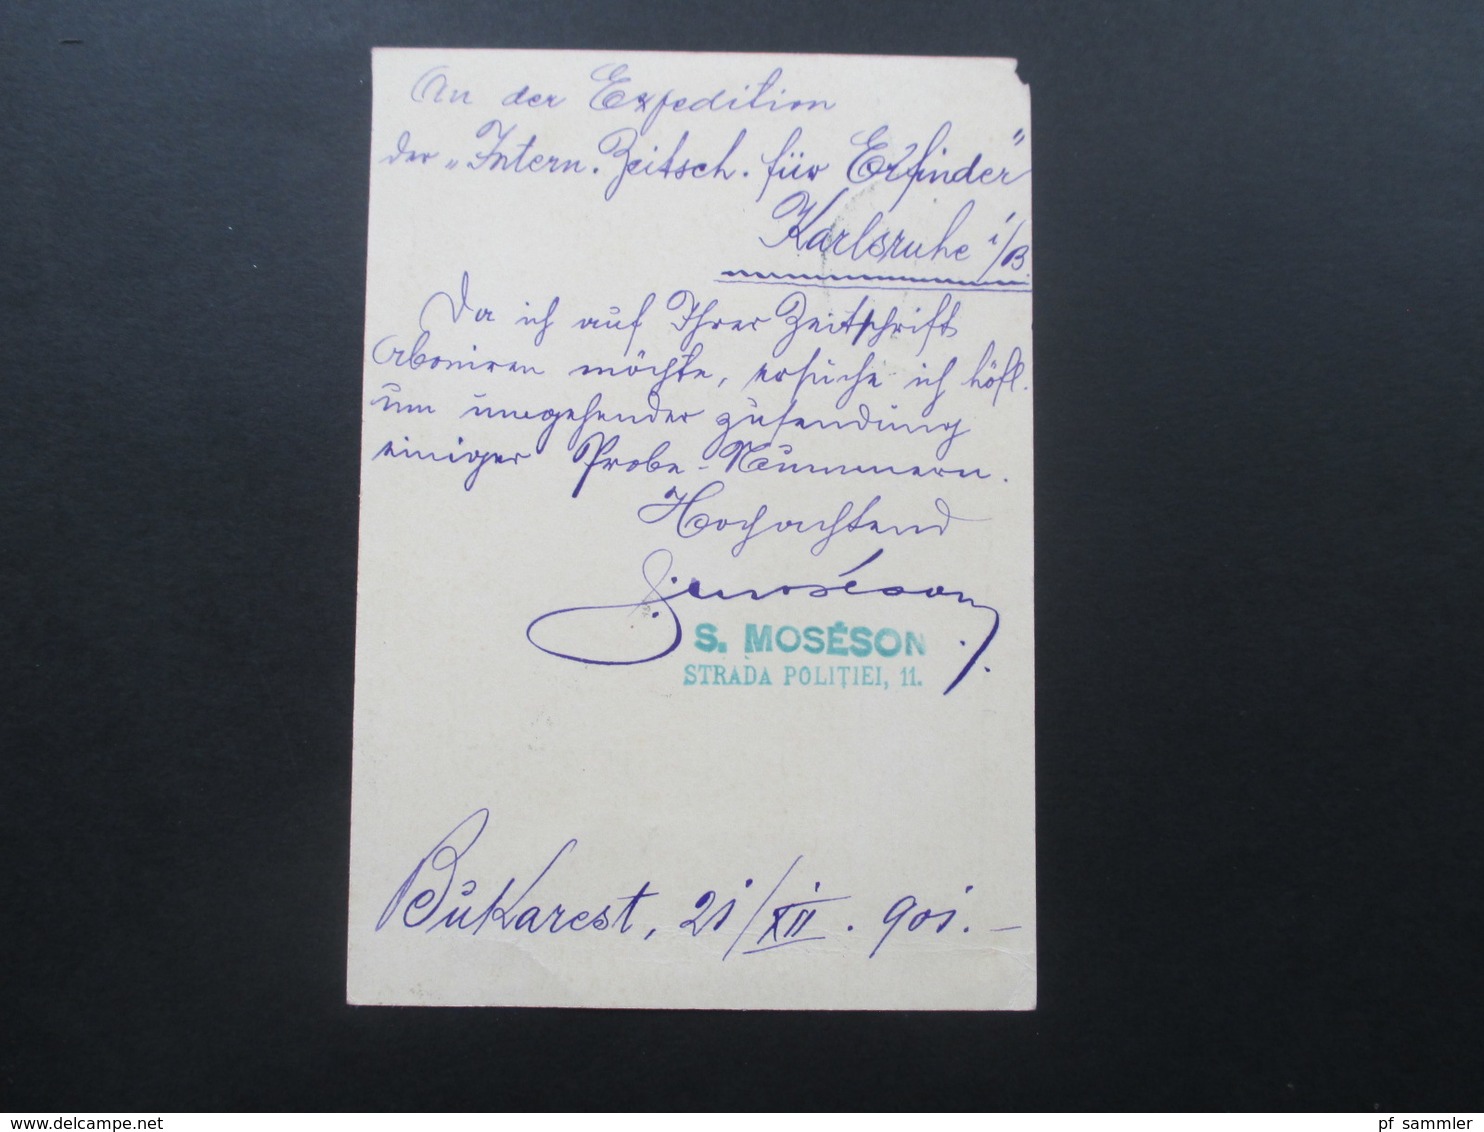 An der Expedition
der „Intern. Zeitsch. für Erfinder"
Karlsruhe i/B.
Da ich auf Ihrer Zeitschrift
Aboniren möchte, ersuche ich höfl.
um umgehender zusendung
einiger Probe-Nummern.
Hochachtend
S. Moséson
S. MOSÉSON
STRADA POLIȚIEI, 11.
Bukarest, 21/XII. 901.–
www.delcampe.net
pf_sammler